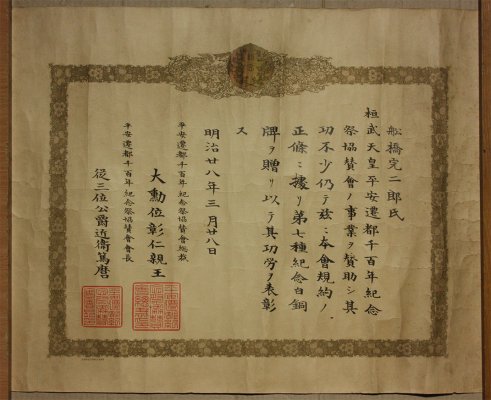 舩橋完二郎氏
桓武天皇平安遷都千百年紀念
祭協賛會ノ事業ヲ賛助シ其
功不少仍テ茲ニ本會規約ノ
正條ニ據リ第七種紀念白銅
牌ヲ贈リ以テ其功労ヲ表彰
ス
明治廿八年三月廿八日
平安遷都千百年紀念祭協賛會総裁
大勲位彰仁親王
平安遷都千百年紀念祭協賛會會長
従三位公爵近衞篤麿